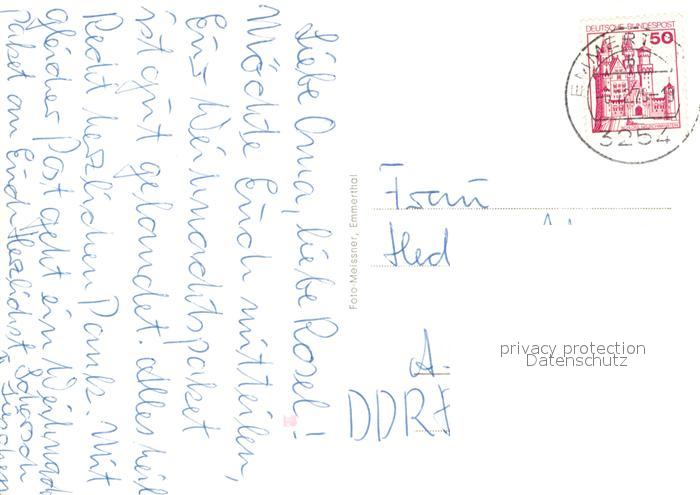 Liebe Oma, liebe Rosel!
Möchte Euch mitteilen,
Eur Weihnachtspaket
ist gut gelandet. Alles heil
Recht herzlichen Dank. Mit
gleicher Post geht ein Weihnachts
paket an Euch Herzlichst
Foto-Meissner, Emmerthal
DEUTSCHE BUNDESPOST
50
EMMER
3254
Frau
Hed
A.
DDR
privacy protection
Datenschutz